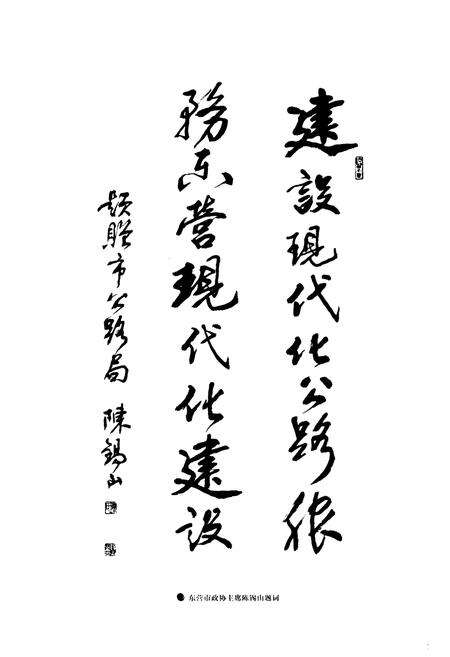 建設現代化公路服
務东營現代化建设
题赠市公路局 陳錫山
●东营市政协主席陈锡山题词